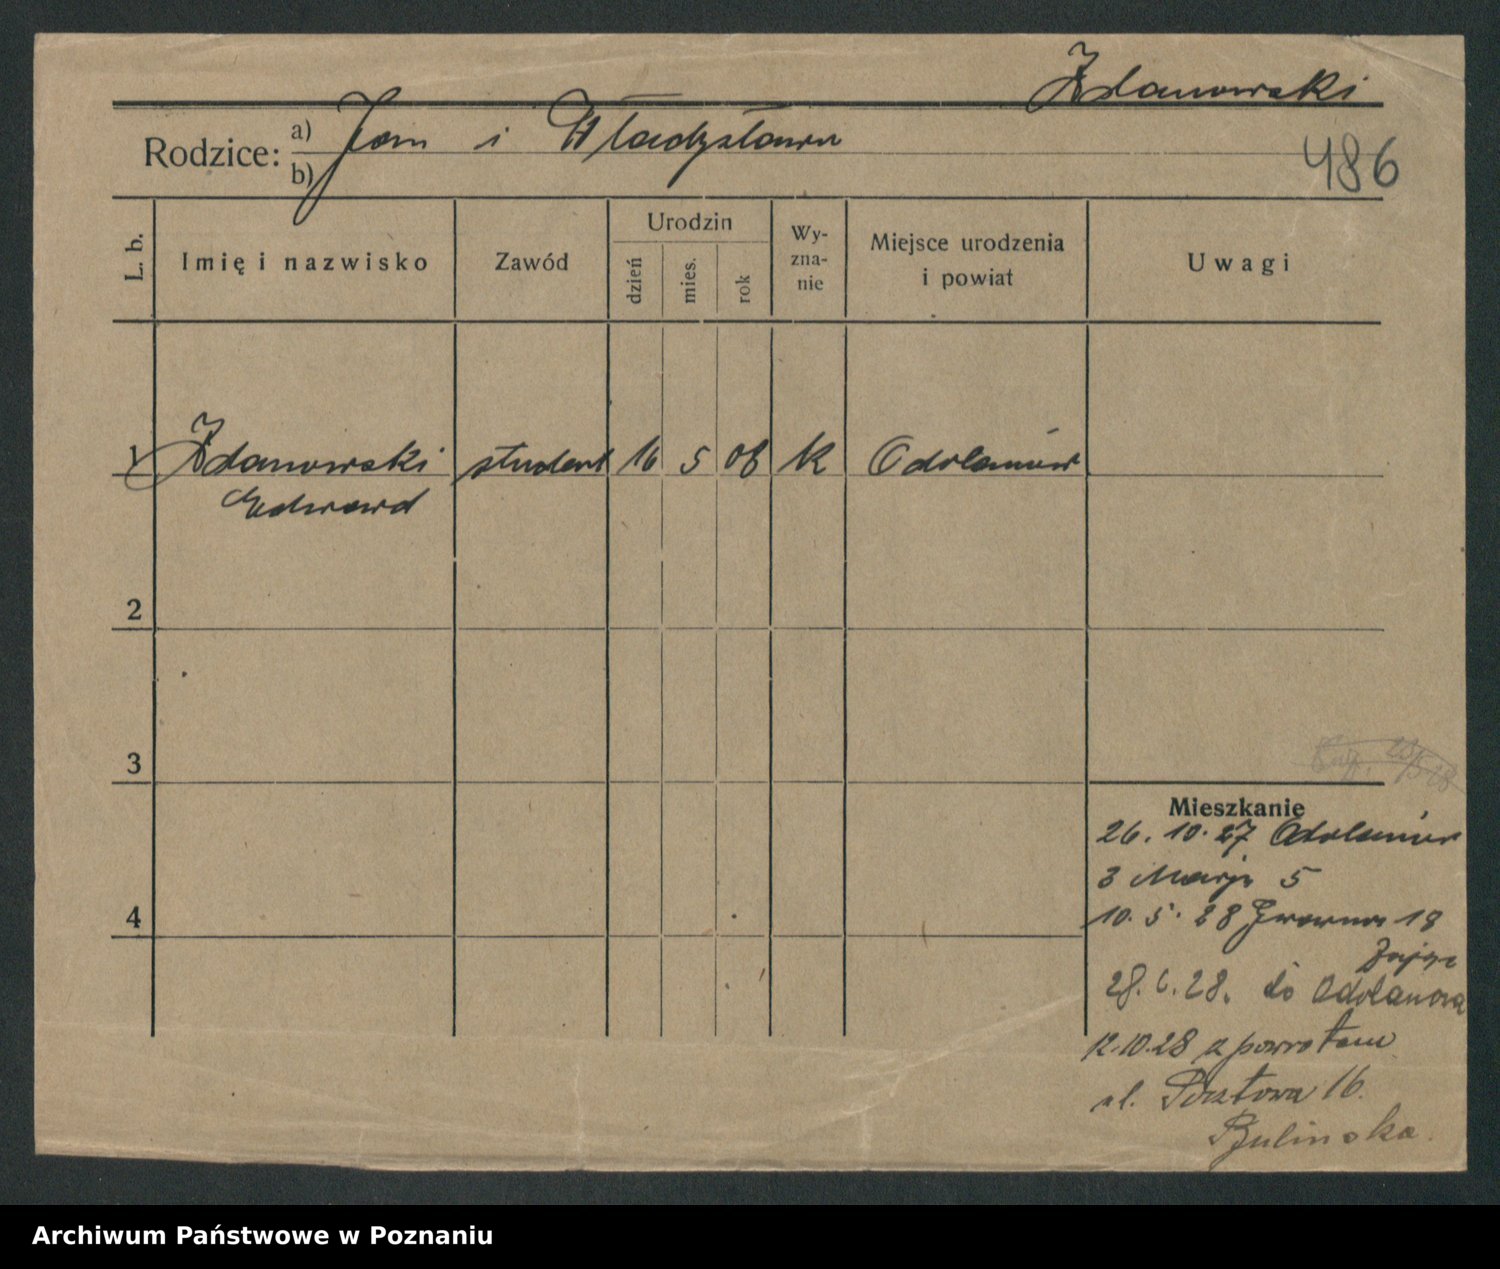 Zdanowski
Rodzice: a) Jan i Władysława
b)
486
L. b.
Imię i nazwisko
Zawód
Urodzin
dzień
mies.
rok
Wy-
zna-
nie
Miejsce urodzenia
i powiat
Uwagi
1 Zdanowski student 16 5 08 k Odolanów
Edward
2
3
4
Mieszkanie
26. 10. 27 Odolanów
3 Maja 5
10. 5. 28 19
Zając
28. 6. 28. do Odolanowa
12.10.28 z powrotem
ul. Pocztowa 16.
Archiwum Państwowe w Poznaniu